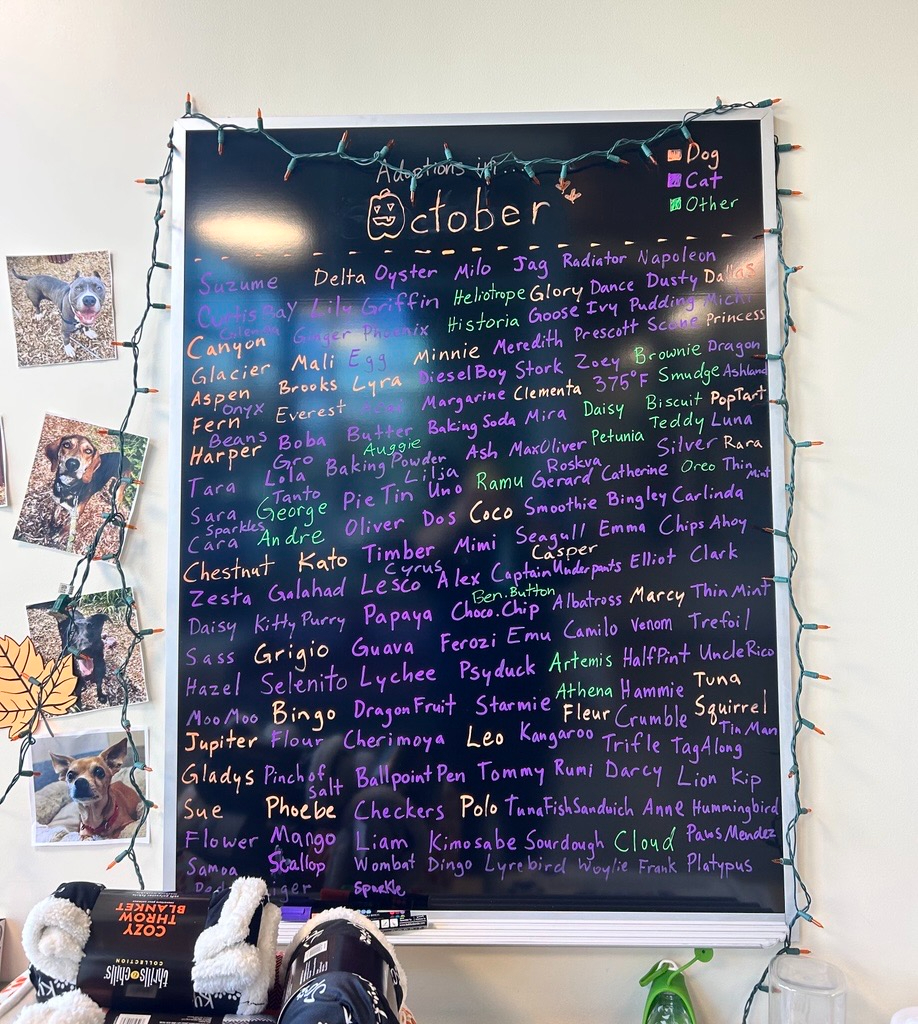 Adoptions in...
October
Dog
Cat
Other
Suzume Delta Oyster Milo Jag Radiator Napoleon
Curtis Ray Lily Griffin Heliotrope Glory Dance Dusty Dallas
Ginger Phoenix Historia Goose Ivy Pudding Michi
Canyon Mali Egg Minnie Meredith Prescott Scone Princess
Glacier Brooks Lyra Diesel Boy Stork Zoey Brownie Dragon
Aspen Onyx Everest Margarine Clementa 375°F Smudge Ashland
Fern Beans Boba Butter Baking Soda Mira Daisy Biscuit PopTart
Harper Gro Auggie Ash Max Oliver Petunia Teddy Luna
Tara Lola Baking Powder Lilja Roskva Silver Rara
Tanto Pie Tin Uno Ramu Gerard Catherine Oreo Thin Mint
Sara George Oliver Dos Coco Smoothie Bingley Carlinda
Sparkles
Cara Andre Timber Mimi Seagull Emma Chips Ahoy
Chestnut Kato Cyrus Casper
Zesta Galahad Lesco Alex Captain Underpants Elliot Clark
Ben. Button
Daisy Kitty Purry Papaya Choco. Chip Albatross Marcy Thin Mint
Sass Grigio Guava Ferozi Emu Camilo Venom Trefoil
Hazel Selenito Lychee Psyduck Artemis Half Pint Uncle Rico
MooMoo Bingo Dragon Fruit Starmie Athena Hammie Tuna
Jupiter Flour Cherimoya Leo Kangaroo Fleur Crumble Squirrel
Trifle TagAlong Tin Man
Gladys Pinch of Salt Ballpoint Pen Tommy Rumi Darcy Lion Kip
Sue Phoebe Checkers Polo TunaFishSandwich Anne Hummingbird
Flower Mango Liam Kimosabe Sourdough Cloud Paws Mendez
Samoa Scallop Wombat Dingo Lyrebird Woylie Frank Platypus
Sparkle
COZY
THROW
BLANKET
COLLECTION
thrills & chills